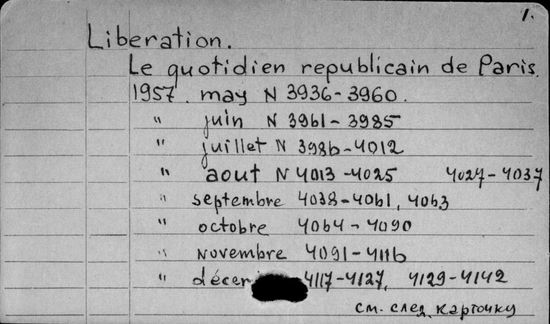 1.
Liberation.
Le quotidien republicain de Paris.
1957. may N 3936-3960.
" juin N 3961-3985
" juillet N 3986-4012
" aout N 4013-4025 4027-4037
" septembre 4038-4061, 4063
" octobre 4064-4090
" novembre 4091-4116
" 4117-4127, 4129-4142
см. след. карточку